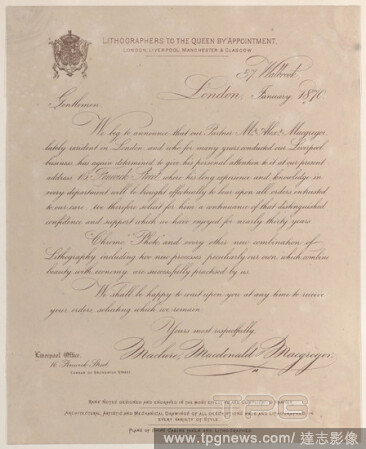 LITHOGRAPHERS TO THE QUEEN BY APPOINTMENT.
LONDON, LIVERPOOL, MANCHESTER & GLASGOW.
37, Walbrook
London, January, 1870
Gentlemen,
We beg to announce that our Partner Mr. Alex. Macgregor,
lately resident in London and who for many years conducted our Liverpool
business has again determined to give his personal attention to it at our present
address, where his long experience and knowledge in
every department will be brought effectually to bear upon all orders entrusted
to our care; we therefore solicit for him a continuance of that distinguished
confidence and support which we have enjoyed for nearly thirty years.
Chromo, Photo, and every other new combination of
Lithography, including two new processes, peculiarly our own, which combine
beauty with economy, are successfully practised by us.
We shall be happy to wait upon you at any time to receive
your orders, soliciting which we remain
Yours most respectfully,
Maclure, Macdonald & Macgregor.
Liverpool Office,
Street,
TPG
www.tpgnews.com/達志影像